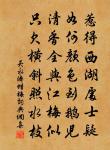 惹得西湖處士疑
如何顏色到鵝兒
清香全與江梅似
只欠橫斜照水枝
吳永濟蠟梅詞典網